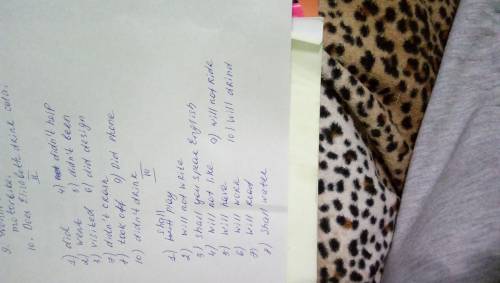 motorbike.
10. Does Elizabeth drink cola.
II
1) did 4) didn't help
2) went 5) didn't been
3) visited 6) did design
7) didn't
8) took off 9) did phone
10) didn't drink
III
shall
1) play
2) will not write
3) shall you speak English
4) will not like 9) will not ride
5) will have 10) will drind
6) will wake
7) will read
8) shall water